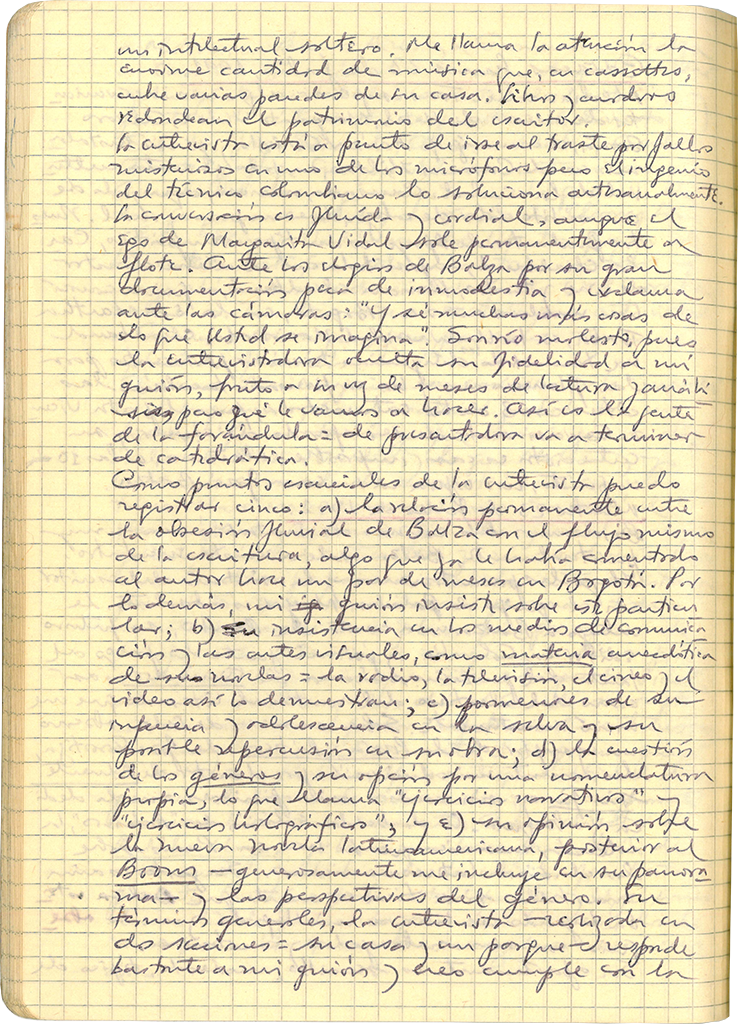 un intelectual soltero. Me llama la atención la
enorme cantidad de música que, en cassettes,
cubre varias paredes de su casa. Libros y cuadros
redondean el patrimonio del escritor.
La entrevista está a punto de irse al traste por fallos
misteriosos en uno de los micrófonos pero el ingenio
del técnico colombiano lo soluciona artesanalmente.
La conversación es fluida y cordial, aunque el
ego de Margarita Vidal sale permanentemente a
flote. Ante los elogios de Balza por su gran
documentación peca de inmodestia y exclama
ante las cámaras: "Y sé muchas más cosas de
lo que Usted se imagina". Sonrío molesto, pues
la entrevistadora oculta su fidelidad a mi
guión, fruto a su vez de meses de lectura y análi
sis, pero qué le vamos a hacer. Así es la gente
de la farándula = de presentadora va a terminar
de catedrática.
Como puntos esenciales de la entrevista puedo
registrar cinco: a) la relación permanente entre
la obsesión fluvial de Balza con el flujo mismo
de la escritura, algo que ya le había comentado
al autor hace un par de meses en Bogotá. Por
lo demás, mi guión insiste sobre este particu
lar; b) su insistencia en los medios de comunica
ción y las artes visuales, como materia anecdótica
de sus novelas = la radio, la televisión, el cine y el
video así lo demuestran; c) pormenores de su
infancia y adolescencia en la selva y su
posible repercusión en su obra; d) la cuestión
de los géneros y su opción por una nomenclatura
propia, lo que llama "ejercicios narrativos" y
"ejercicios holográficos"; y e) su opinión sobre
la nueva novela latinoamericana, posterior al
Boom — generosamente me incluye en su panora
ma — y las perspectivas del género. En
términos generales, la entrevista — realizada en
dos sesiones = su casa y un parque — responde
bastante a mi guión y creo cumple con la